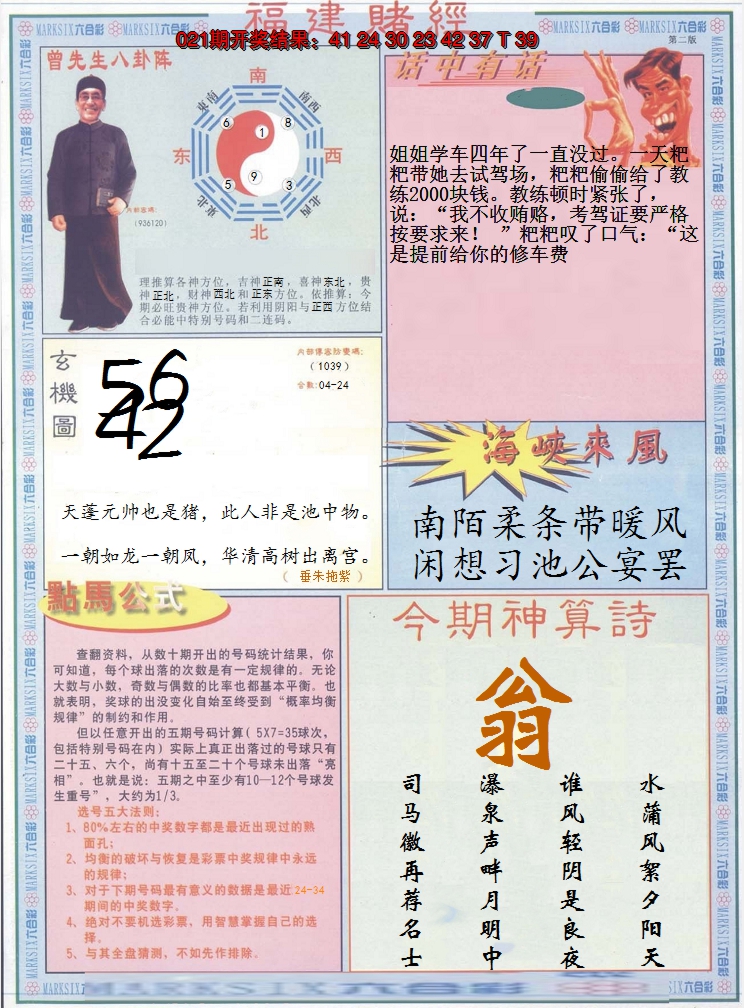 福建賭經
021期开奖结果：41 24 30 23 42 37 T 39
第二版
曾先生八卦阵
南
东南
南西
6
1
8
东
西
5
9
3
东北
北西
北
内部密碼:
(936120)
理推算各神方位，吉神正南，喜神东北，贵
神正北，财神西北和正东方位。依推算：今
期必旺贵神方位。若利用阴阳与正西方位结
合必能中特别号码和二连码。
话中有话
姐姐学车四年了一直没过。一天粑
粑带她去试驾场，粑粑偷偷给了教
练2000块钱。教练顿时紧张了，
说：“我不收贿赂，考驾证要严格
按要求来！ ”粑粑叹了口气：“这
是提前给你的修车费
玄機圖
56
42
内部傳密防雙碼:
(1039)
合数:04-24
天蓬元帅也是猪，此人非是池中物。
一朝如龙一朝凤，华清高树出离宫。
（ 垂朱拖紫 ）
海峽來風
南陌柔条带暖风
闲想习池公宴罢
點馬公式
查翻资料，从数十期开出的号码统计结果，你
可知道，每个球出落的次数是有一定规律的。无论
大数与小数，奇数与偶数的比率也都基本平衡。也
就表明，奖球的出没变化自始至终受到“概率均衡
规律”的制约和作用。
但以任意开出的五期号码计算( 5X7=35球次，
包括特别号码在内) 实际上真正出落过的号球只有
二十五、六个，尚有十五至二十个号球未出落“亮
相”。也就是说：五期之中至少有10—12个号球发
生重号”，大约为1/3。
选号五大法则：
1、80%左右的中奖数字都是最近出现过的熟
面孔；
2、均衡的破坏与恢复是彩票中奖规律中永远
的规律；
3、对于下期号码最有意义的数据是最近24-34
期间的中奖数字。
4、绝对不要机选彩票，用智慧掌握自己的选
择。
5、与其全盘猜测，不如先作排除。
今期神算詩
翁
水蒲风絮夕阳天
谁风轻阴是良夜
瀑泉声畔月明中
司马徽再荐名士
MARKSIX六合彩